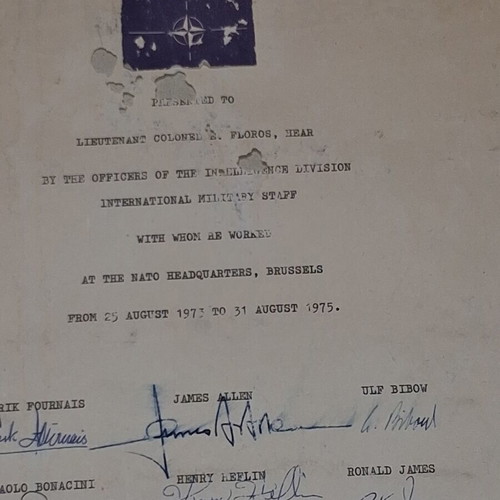 PRESENTED TO
LIEUTENANT COLONEL E. FLOROS, HEAR
BY THE OFFICERS OF THE INTELLIGENCE DIVISION
INTERNATIONAL MILITARY STAFF
WITH WHOM HE WORKED
AT THE NATO HEADQUARTERS, BRUSSELS
FROM 25 AUGUST 1973 TO 31 AUGUST 1975.
RIK FOURNAIS JAMES ALLEN ULF BIBOW
James A. Allen U. Bibow
AOLO BONACINI HENRY HEFLIN RONALD JAMES